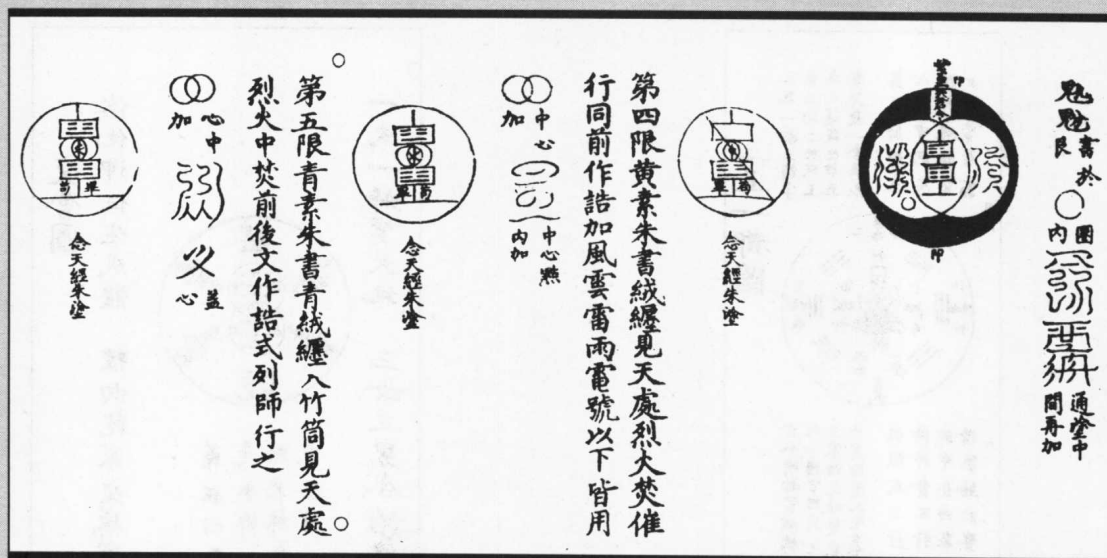 魁魁書於艮
○圍內
通塗中間再加
印
印
念天經朱塗
第四限黃素朱書絨纏見天處烈火焚催
行同前作誥加風雲雷雨電號以下皆用
中心加
中心點內加
念天經朱塗
第五限青素朱書青絨纏入竹筒見天處
烈火中焚前後文作誥式列師行之
心中加
蓋心
念天經朱塗